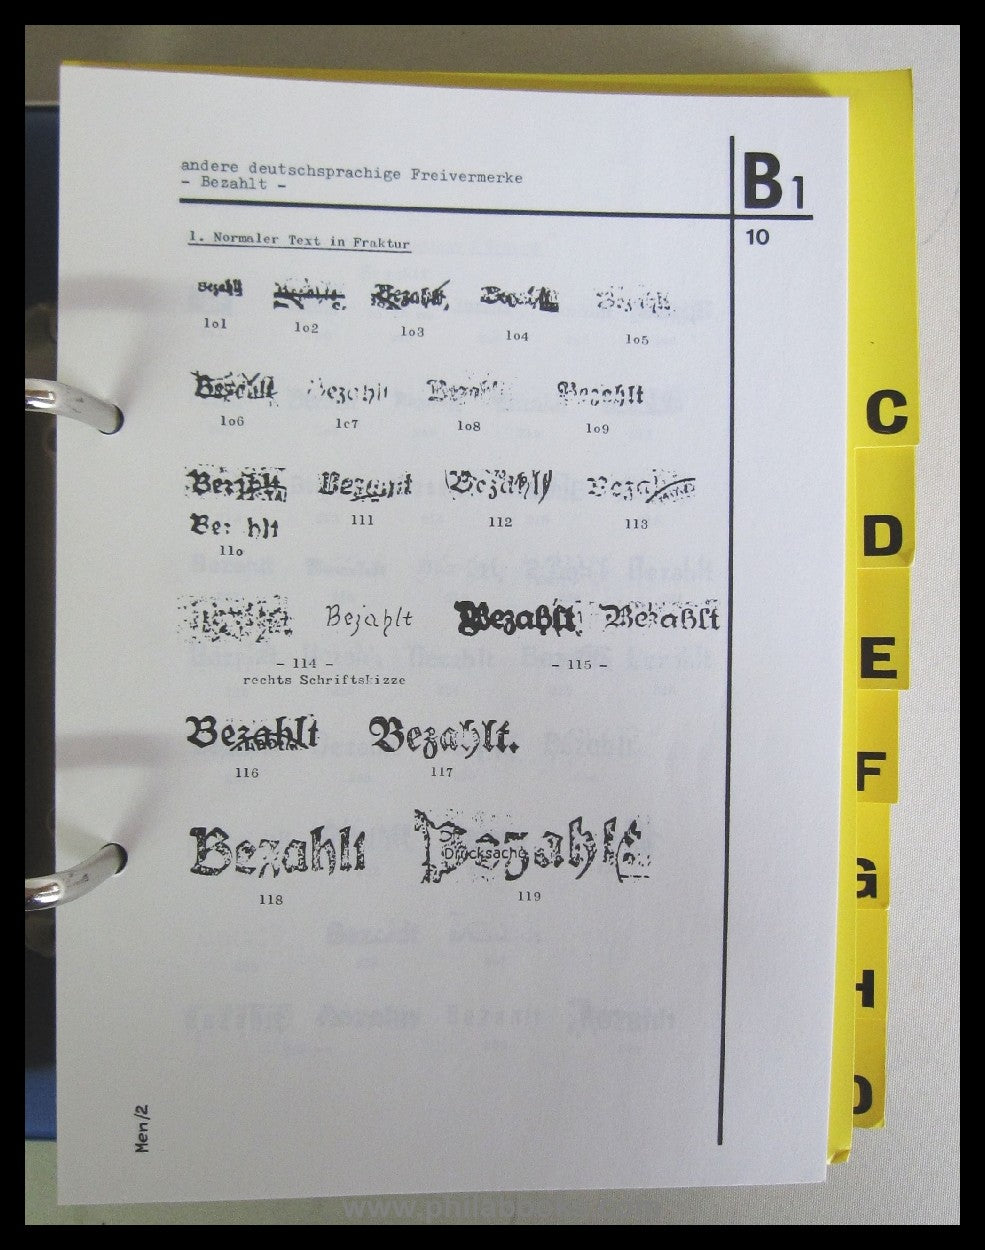 andere deutschsprachige Freivermerke
- Bezahlt -
B 1
10
1. Normaler Text in Fraktur
Bezahlt Bezahlt Bezahlt Bezahlt
lo1 lo2 lo3 lo4 lo5
Bezahlt Bezahlt Bezahlt Bezahlt
lo6 lc7 lo8 lo9
Bezahlt Bezahlt Bezahlt Bezahlt
Be: hlt 111 112 113
11o
Bezahlt Bezahlt Bezahlt
- 114 - - 115 -
rechts Schriftskizze
Bezahlt Bezahlt.
116 117
Bezahlt Bezahlt
Drucksache
118 119
Men/2
C
D
E
F
G
H